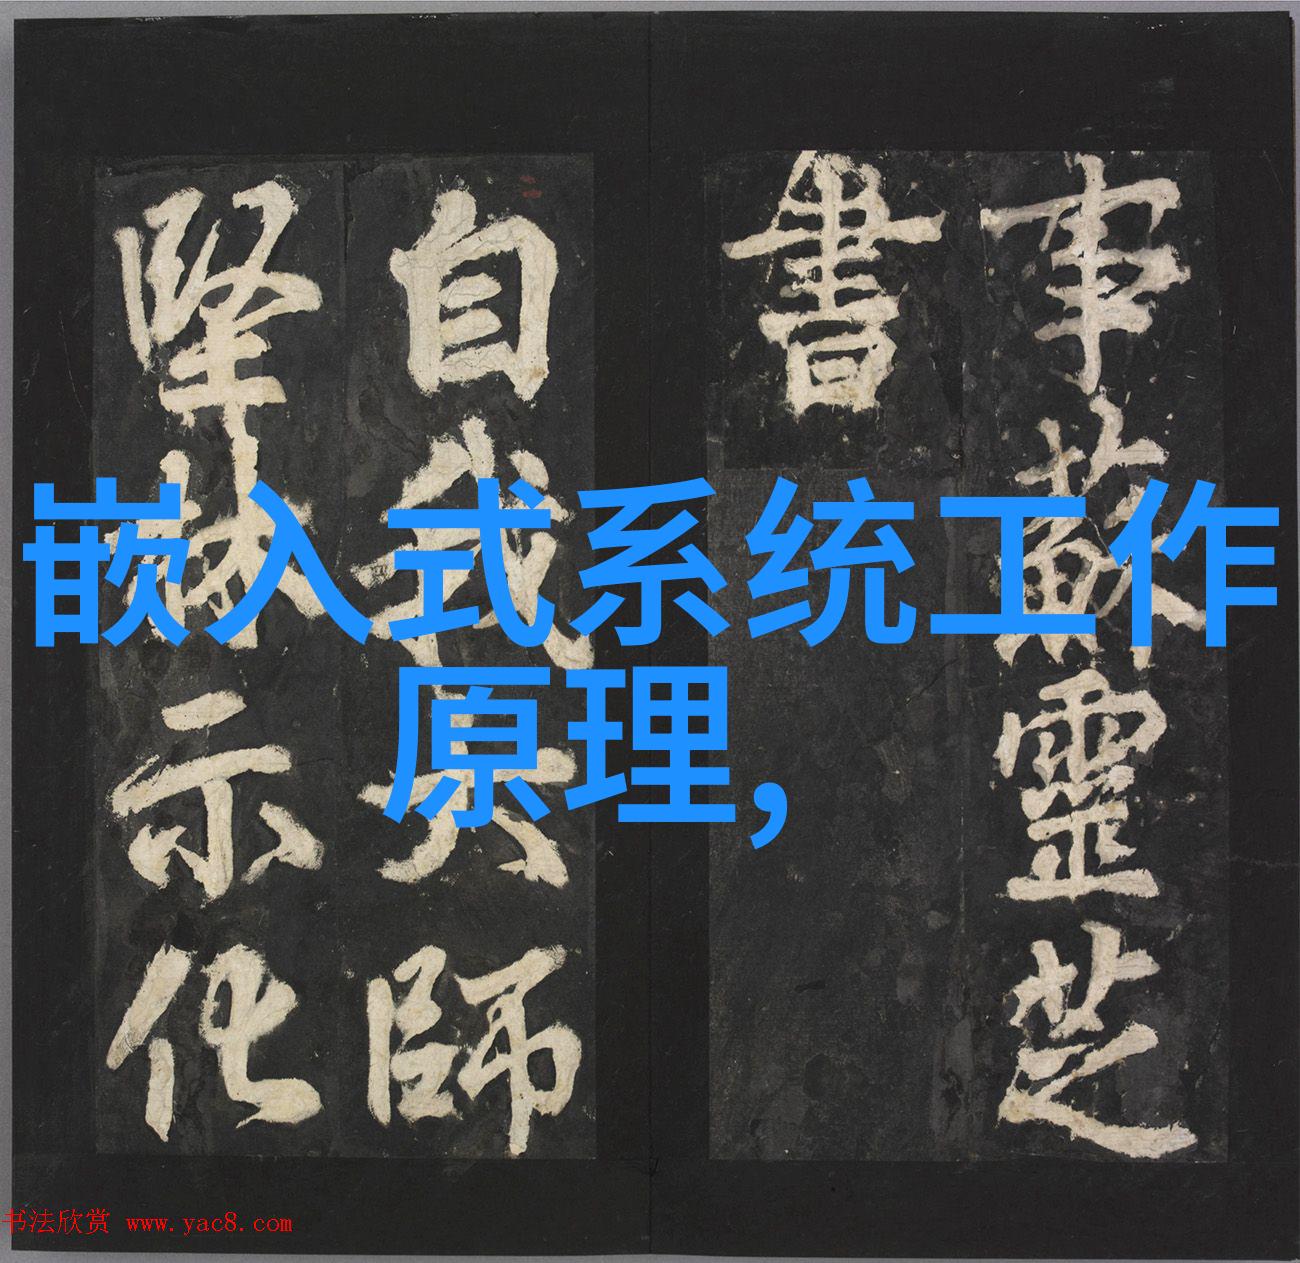 嵌入式系统工作
原理,
事蘇靈芝
書
自我大師
堅林示化
书法欣赏 www.yac8.com